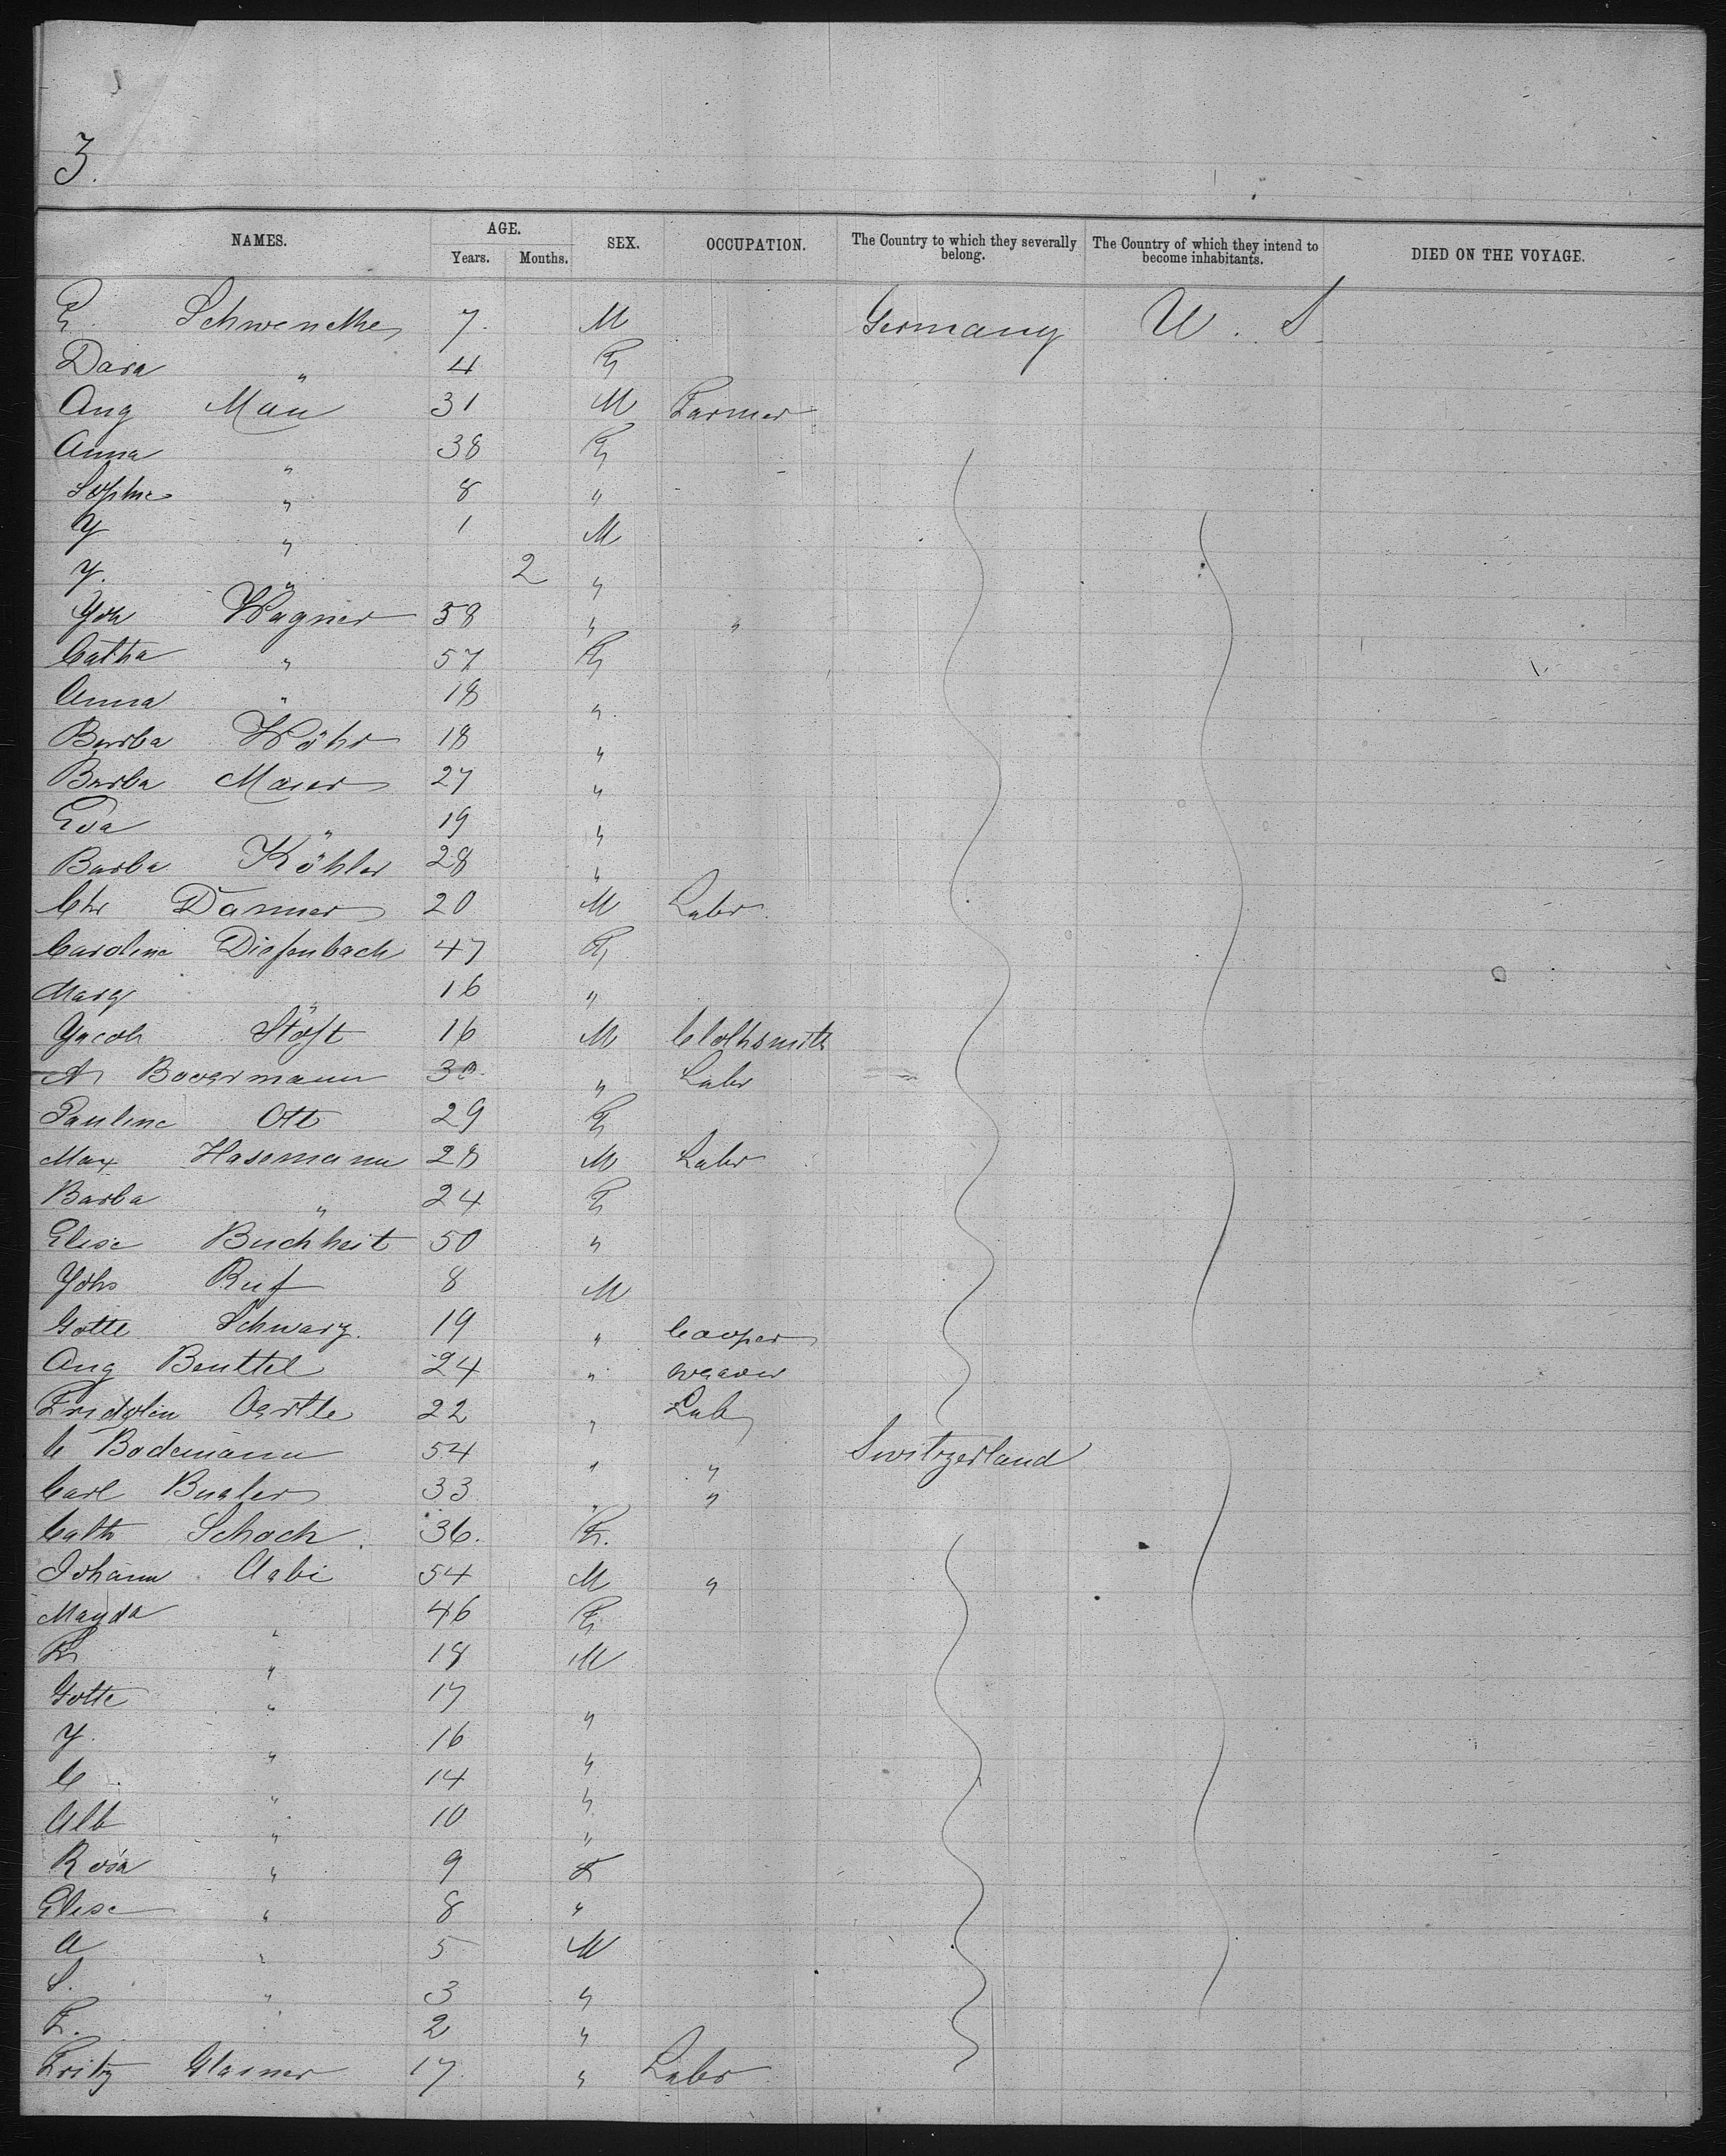 3.
NAMES. AGE. Years. Months. SEX. OCCUPATION. The Country to which they severally belong. The Country of which they intend to become inhabitants. DIED ON THE VOYAGE.
E. Schwencke 7. M Germany U. S
Dora " 4 F
Aug Mau 31 M Farmer
Anna " 38 F
Sophie " 8 "
J " 1 M
J. " 2 "
Joh Wagner 58 " "
Catha " 57 F
Anna " 18 "
Barba Wöhr 18 "
Barba Maier 27 "
Eva " 19 "
Barba Köhler 28 "
Chr Danner 20 M Labr.
Caroline Diefenbach 47 F
Marg " 16 "
Jacob Stöft 16 M Clothsmith
A Bovermann 30 " Labr
Pauline Ott 29 F
Max Hasemann 28 M Labr
Barba " 24 F
Elise Buchheit 50 "
Johs Ruf 8 M
Gottl Schwarz. 19 " Cooper
Aug Beuttel 24 " weaver
Fridolin Oertle 22 " Lab
C Bodemann 54 " " Switzerland
Carl Bugler 33 " "
Cath Schoch. 36. F.
Johann Aebi 54 M "
Magda " 46 F
Fr " 18 M
Gottl " 17 "
J. " 16 "
C. " 14 "
Alb " 10 "
Rosa " 9 F
Elise " 8 "
A " 5 M
S. " 3 "
F. " 2 "
Fritz Glasner 17. " Labr